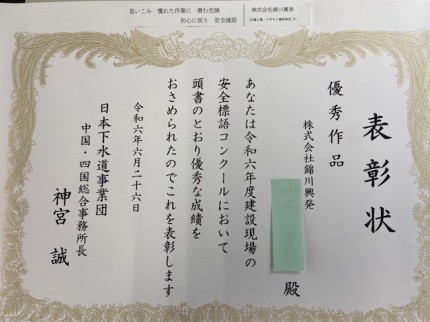 思いこみ 慣れた作業に 潜む危険
初心に戻り 安全確認
株式会社錦川興発
表彰状
優秀作品
株式会社錦川興発
殿
あなたは令和六年度建設現場の
安全標語コンクールにおいて
頭書のとおり優秀な成績を
おさめられたのでこれを表彰します
令和六年六月二十六日
日本下水道事業団
中国・四国総合事務所長
神宮 誠